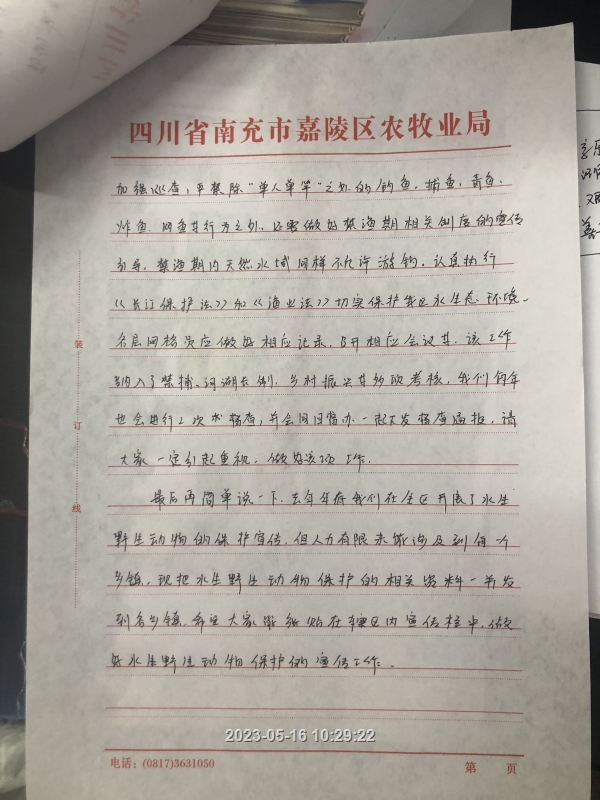 四川省南充市嘉陵区农牧业局
加强巡查，严禁除“单人单竿”之外的钓鱼、捕鱼、毒鱼、
炸鱼、网鱼等行为之外，还需做好禁渔期相关制度的宣传
引导，禁渔期内天然水域同样不允许游钓，认真执行
《长江保护法》和《渔业法》切实保护我区水生态环境。
各层网格员应做好相应记录，召开相应会议等，该工作
纳入了禁捕、河湖长制、乡村振兴等多项考核，我们每年
也会进行2次水 督查，并会同目督办一起下发督查通报，请
大家一定引起重视，做好该项工作。
最后再简单说一下，去年年底我们在全区开展了水生
野生动物的保护宣传，但人力有限未能涉及到每一个
乡镇，现把水生野生动物保护的相关资料一并发
到各乡镇，希望大家张贴在辖区内宣传栏中，做
好水生野生动物保护的宣传工作。
装
订
线
2023-05-16 10:29:22
电话：(0817)3631050
第 页